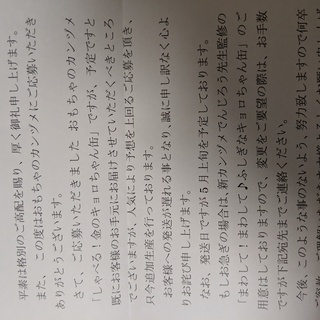 平素は格別のご高配を賜り、厚く御礼申し上げます。
また、この度はおもちゃのカンヅメにご応募いただき
ありがとうございます。
さて、ご応募いただきました おもちゃのカンヅメ
「しゃべる！金のキョロちゃん缶」ですが、予定ですと
既にお客様のお手元にお届けさせていただくべきところ
でございますが、人気により予想を上回るご応募を頂き、
只今追加生産を行っております。
お客様への発送が遅れる事となり、誠に申し訳なく心よ
りお詫び申し上げます。
なお、発送日ですが5月上旬を予定しております。
もしお急ぎの場合は、新カンヅメでんじろう先生監修の
「まわして！まわして♪ふしぎなキョロちゃん缶」のご
用意はしておりますので、変更をご要望の際は、お手数
ですが下記宛先までご連絡ください。
今後、このような事のないよう、努力致しますので何卒